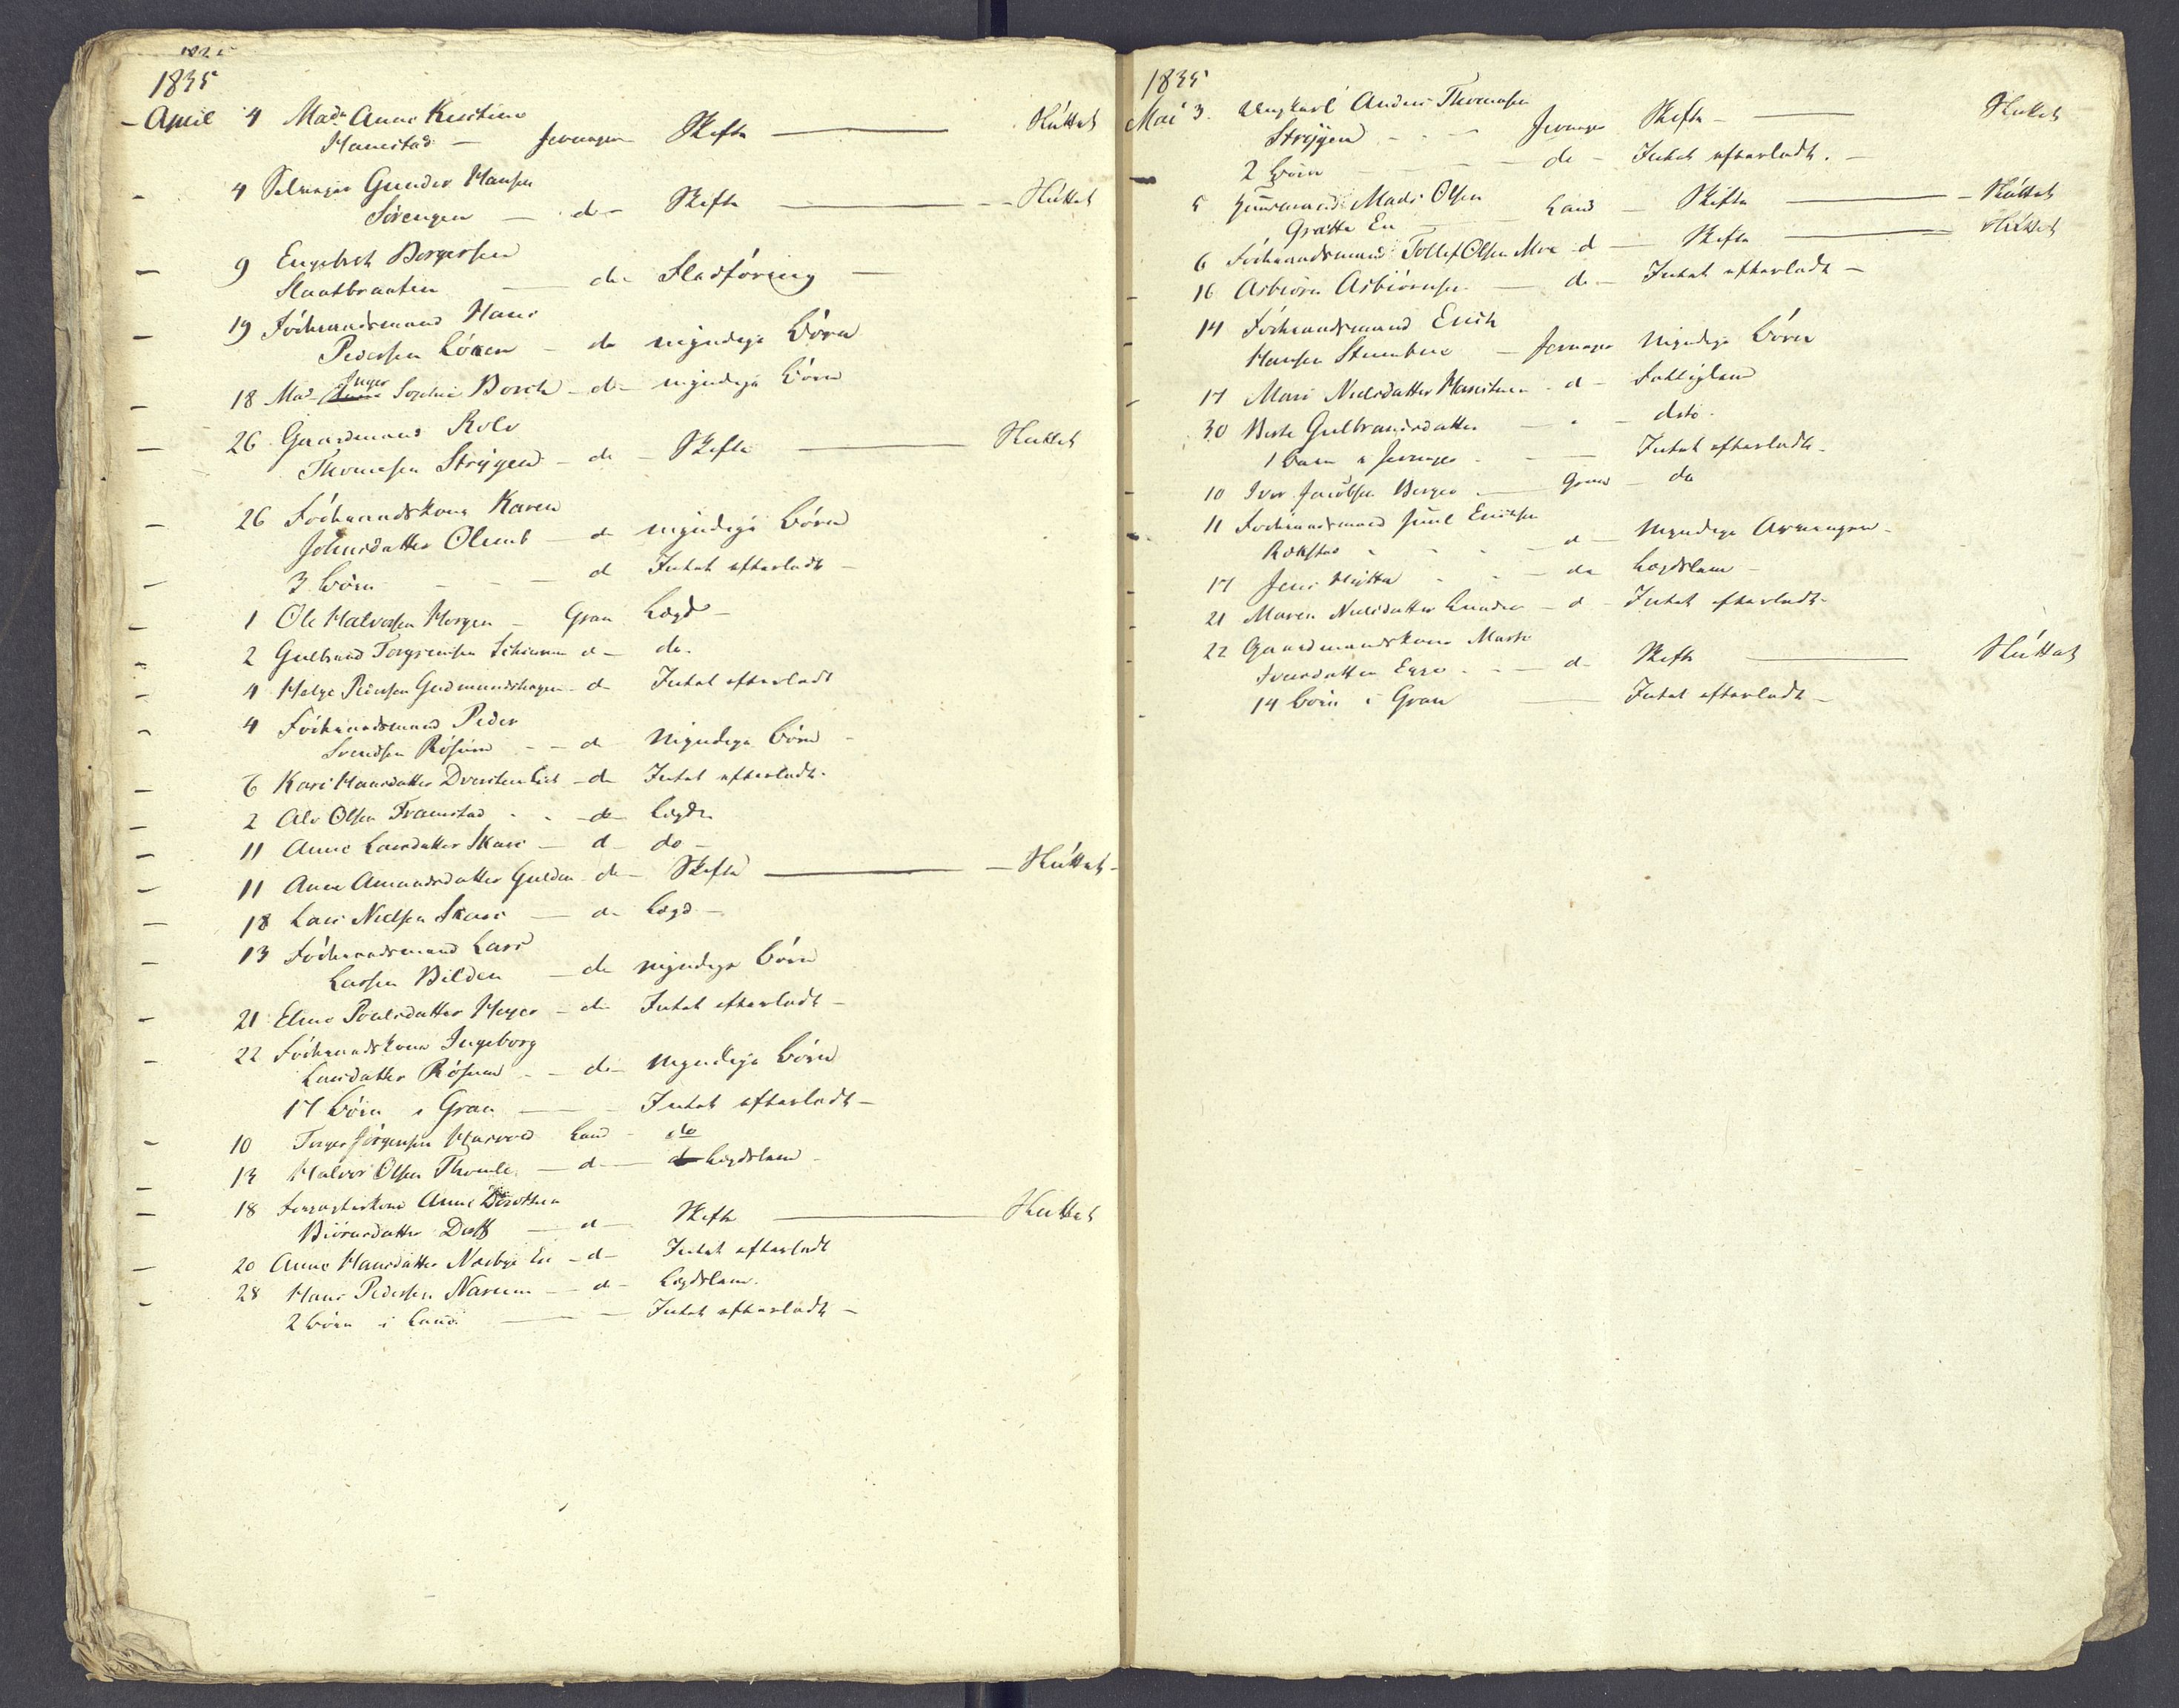 1835
April 4 Mad. Anne Kirstine
Hanestad — Jevnager Skifte — Sluttet
4 Selveier Gunder Hansen
Sørengen — do — Skifte — Sluttet
9 Engebret Borgersen
Slaatbraaten — do Fladføring —
19 Föderaadsmand Hans
Pedersen Løken — do myndige Børn
18 Mad. Inger Sophie Borch — do — myndige Børn
26 Gaardmand Rolv
Thomesen Strÿgen — do — Skifte — Sluttet
26 Föderaadskone Karen
Johnsdatter Olimb — do myndige Børn
3 Børn — do Intet efterladt —
1 Ole Halvorsen Horgen — Gran Lægd —
2 Gulbrand Torgrimsen — do — do.
4 Helge Gudmundshagen — do Intet efterladt
4 Föderaadsmand Peder
Svendsen Røsum — do — Myndige Børn —
6 Kari Hansdatter — do Intet efterladt.
2 Ale Olsen Framstad — do Lægd
11 Anne Larsdatter Skari — do — do —
11 Anne Amundsdatter Gulden — do — Skifte — Sluttet —
18 Lars Nielsen Skari — do Lægd —
13 Föderaadsmand Lars
Larsen Bilden — do myndige Børn
21 Eline Poulsdatter Heyer — do Intet efterladt —
22 Föderaadskone Ingeborg
Larsdatter Røsum — do — Myndige Børn
17 Børn i Gran — Intet efterladt —
10 Torger Jörgensen Land — do
13 Halvor Olsen Thomle — do — Lægdslem —
18 Anne Dorothea
Biörnsdatter — do — Skifte — Sluttet
20 Anne Hansdatter Nordbye Ei — do — Intet efterladt
28 Hans Pedersen Narum — do — Lægdslem.
2 Børn i Land — Intet efterladt —
1835
Mai 3. Ungkarl Anders Thomesen
Strÿgen — Jevnager Skifte — Sluttet
2 Børn — do — Intet efterladt. —
5 Huusmand Mads Olsen
Grøtte Ei — Land — Skifte — Sluttet
6 Föderaadsmand Tollef Olsen Moe — do — Skifte — Sluttet
16 Asbiørn Asbiørnsen — do — Intet efterladt —
14 Föderaadsmand Erich
Hansen — Jevnager Myndige Børn
17 Mari Nielsdatter — do — Fattiglem
30 Berte Gulbrandsdatter — dito.
1 Barn i Jevnager — Intet efterladt —
10 Iver Jacobsen Berger — Gran — do
11 Föderaadsmand Juul Erichsen
Rokstad — do — Myndige Arvinger —
17 Jens Hÿtta — do Lægdslem —
21 Maren Nielsdatter — do — Intet efterladt —
22 Gaardmandskone Marthe
Iversdatter Egge — do — Skifte — Sluttet
14 Børn i Gran — Intet efterladt —